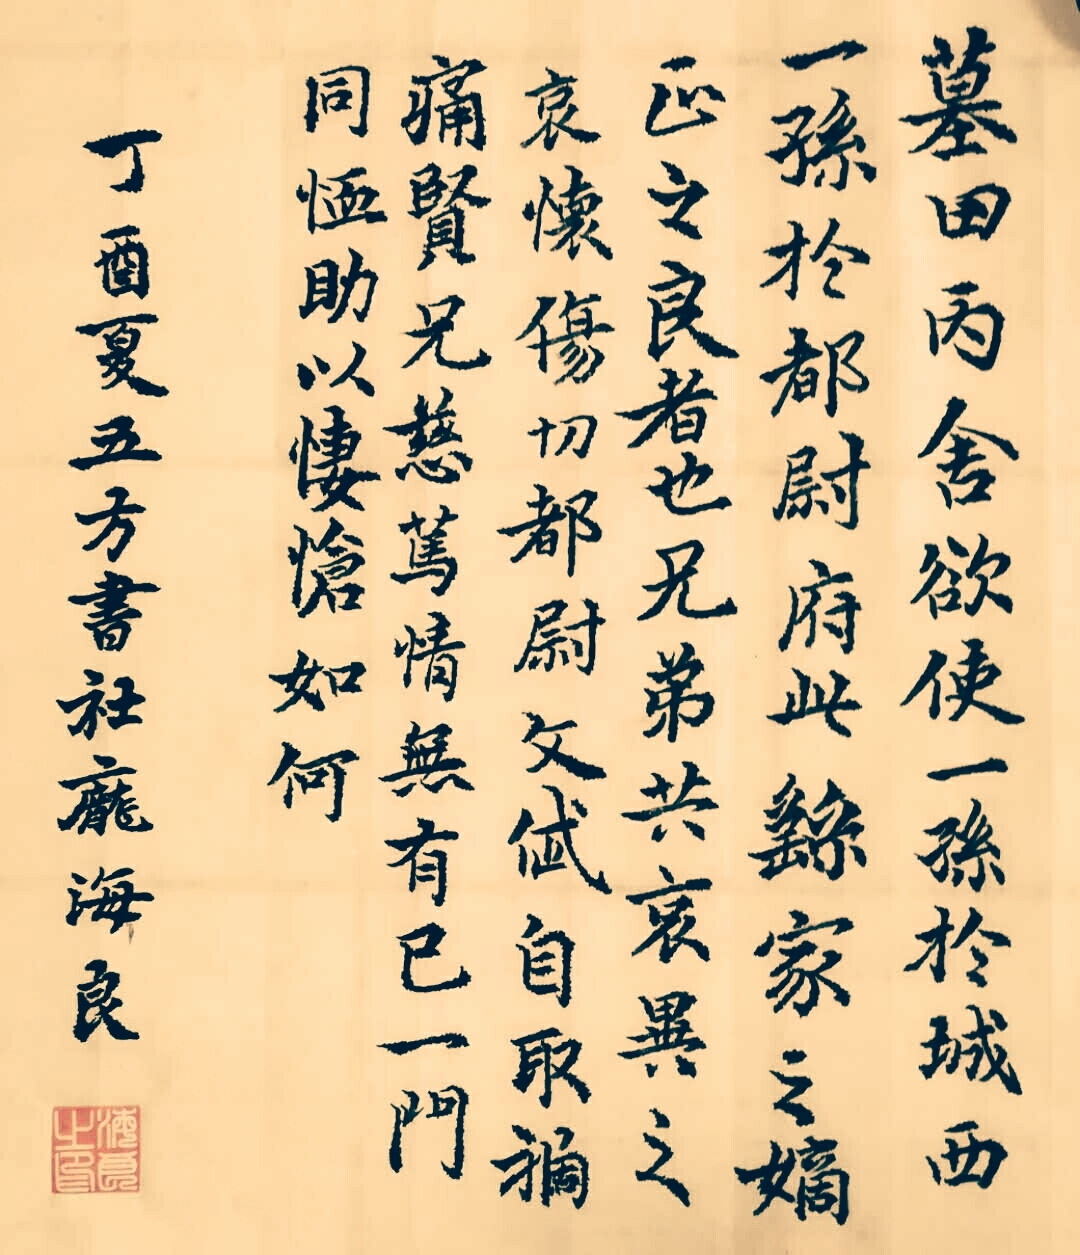 墓田丙舍欲使一孫於城西
一孫於都尉府此繇家之嫡
正之良者也兄弟共哀異之
哀懷傷切都尉文岱自取禍
痛賢兄慈篤情無有已一門
同恤助以悽愴如何
丁酉夏五方書社龐海良
海良之印